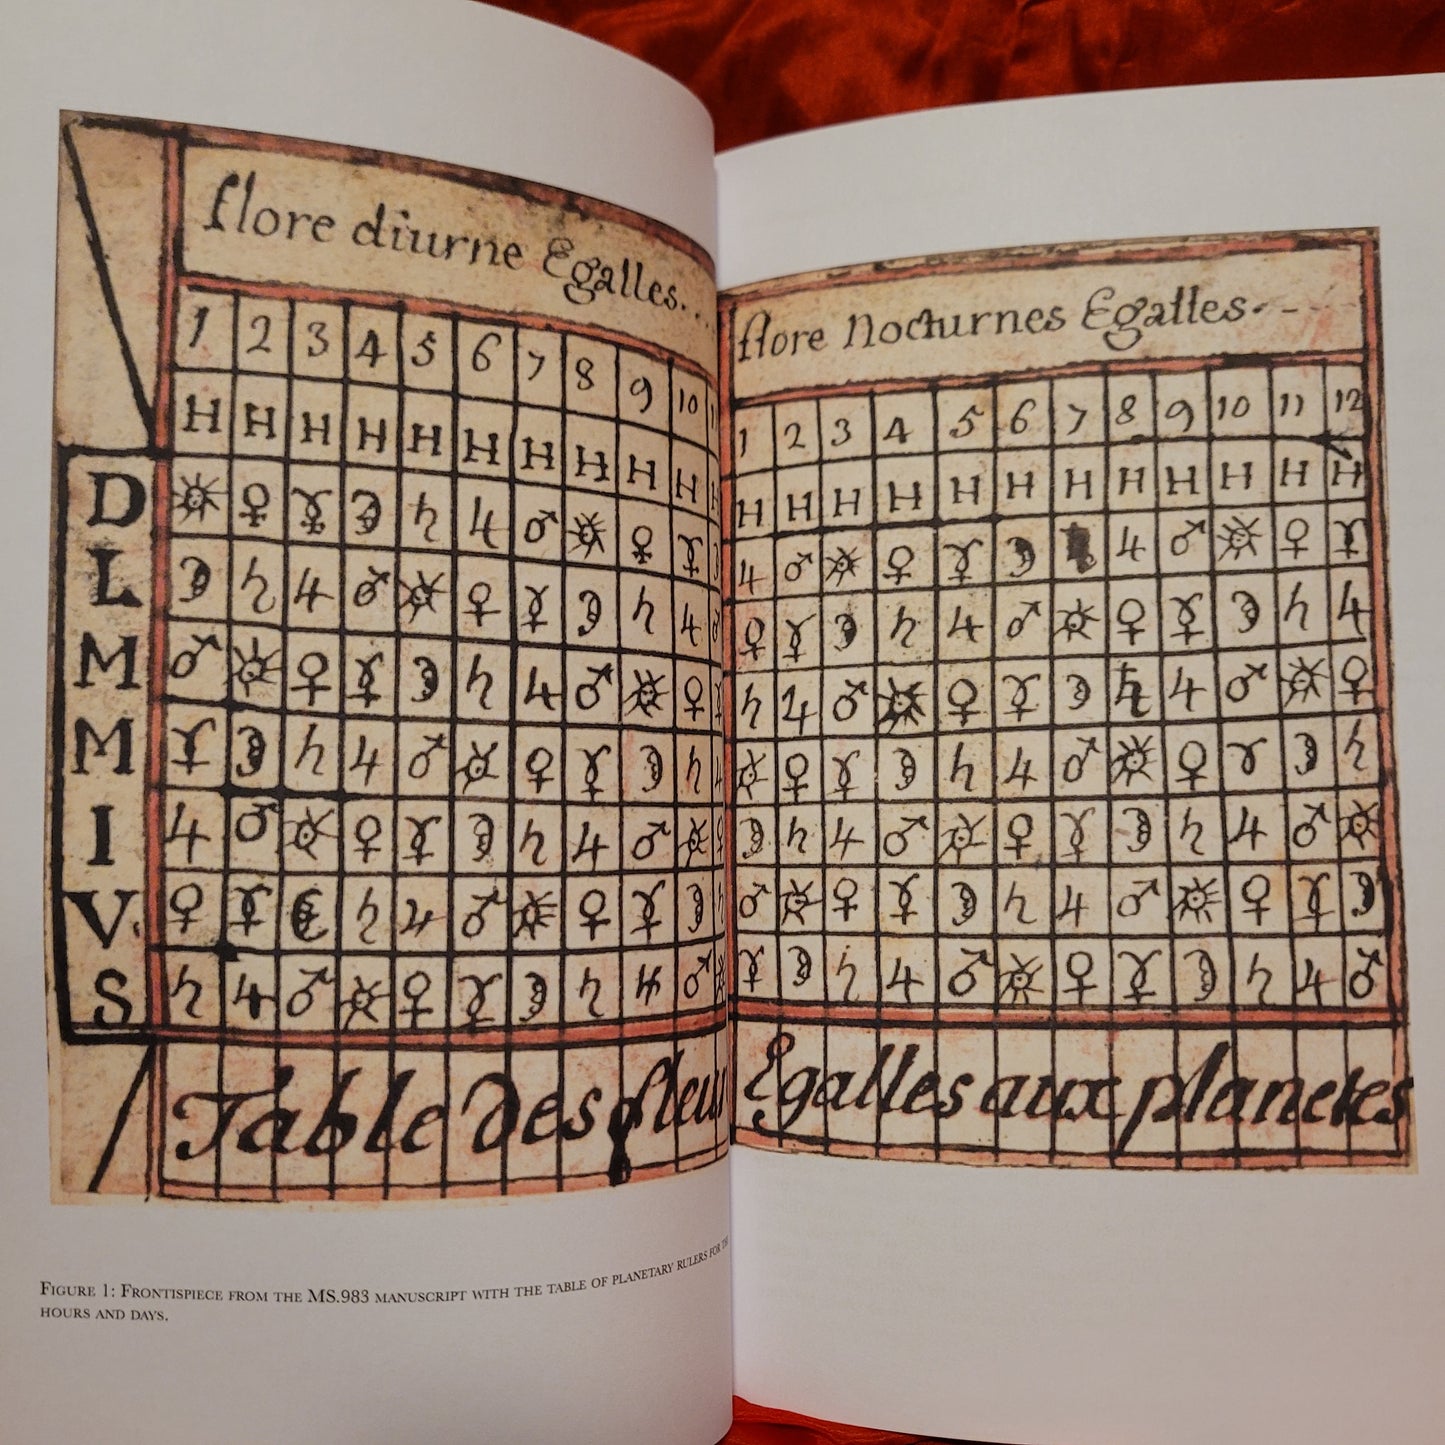 flore diurne Egalles...
1 2 3 4 5 6 7 8 9 10
H H H H H H H H H H H
D ☉ ♀ ☿ ☽ ♄ ♃ ♂ ☉ ♀ ☿
L ☽ ♄ ♃ ♂ ☉ ♀ ☿ ☽ ♄ ♃
M ♂ ☉ ♀ ☿ ☽ ♄ ♃ ♂ ☉ ♀
M ☿ ☽ ♄ ♃ ♂ ☉ ♀ ☿ ☽ ♄
I ♃ ♂ ☉ ♀ ☿ ☽ ♄ ♃ ♂ ☉
V ♀ ☿ ☽ ♄ ♃ ♂ ☉ ♀ ☿ ☽
S ♄ ♃ ♂ ☉ ♀ ☿ ☽ ♄ ♃ ♂
Table des fleu
FIGURE 1: FRONTISPIECE FROM THE MS.983 MANUSCRIPT WITH THE TABLE OF PLANETARY RULERS FOR THE
HOURS AND DAYS.
flore Nocturnes Egalles.---
1 2 3 4 5 6 7 8 9 10 11 12
H H H H H H H H H H H H
♃ ♂ ☉ ♀ ☿ ☽ ♃ ♂ ☉ ♀ ☿
♀ ☿ ☽ ♄ ♃ ♂ ☉ ♀ ☿ ☽ ♄ ♃
♄ ♃ ♂ ☉ ♀ ☿ ☽ ♄ ♃ ♂ ☉ ♀
☉ ♀ ☿ ☽ ♄ ♃ ♂ ☉ ♀ ☿ ☽ ♄
☽ ♄ ♃ ♂ ☉ ♀ ☿ ☽ ♄ ♃ ♂ ☉
♂ ☉ ♀ ☿ ☽ ♄ ♃ ♂ ☉ ♀ ☿ ☽
☿ ☽ ♄ ♃ ♂ ☉ ♀ ☿ ☽ ♄ ♃ ♂
Egalles aux planetes